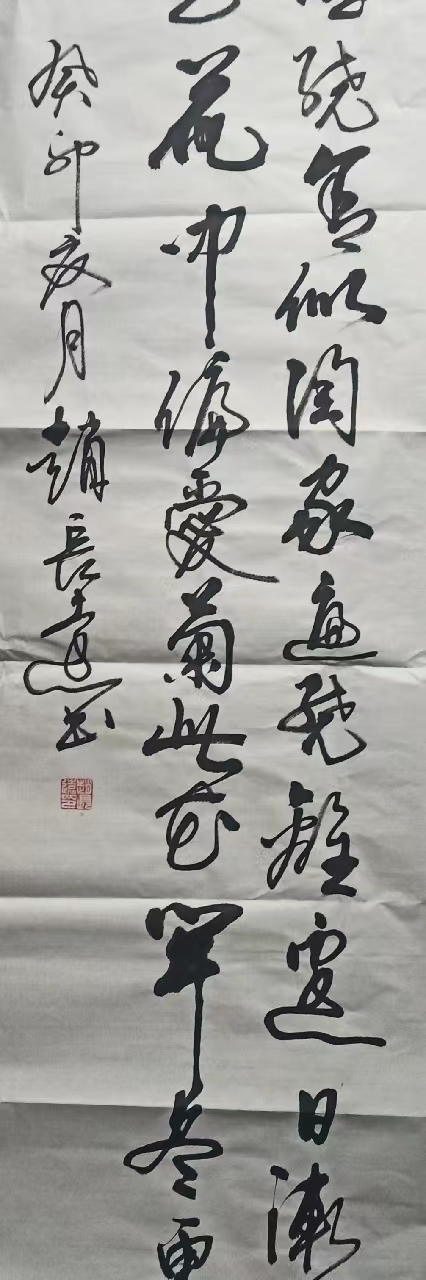 繞舍似陶家遍繞籬邊日漸
花中偏愛菊此花開尽更
癸卯夏月趙長遠书